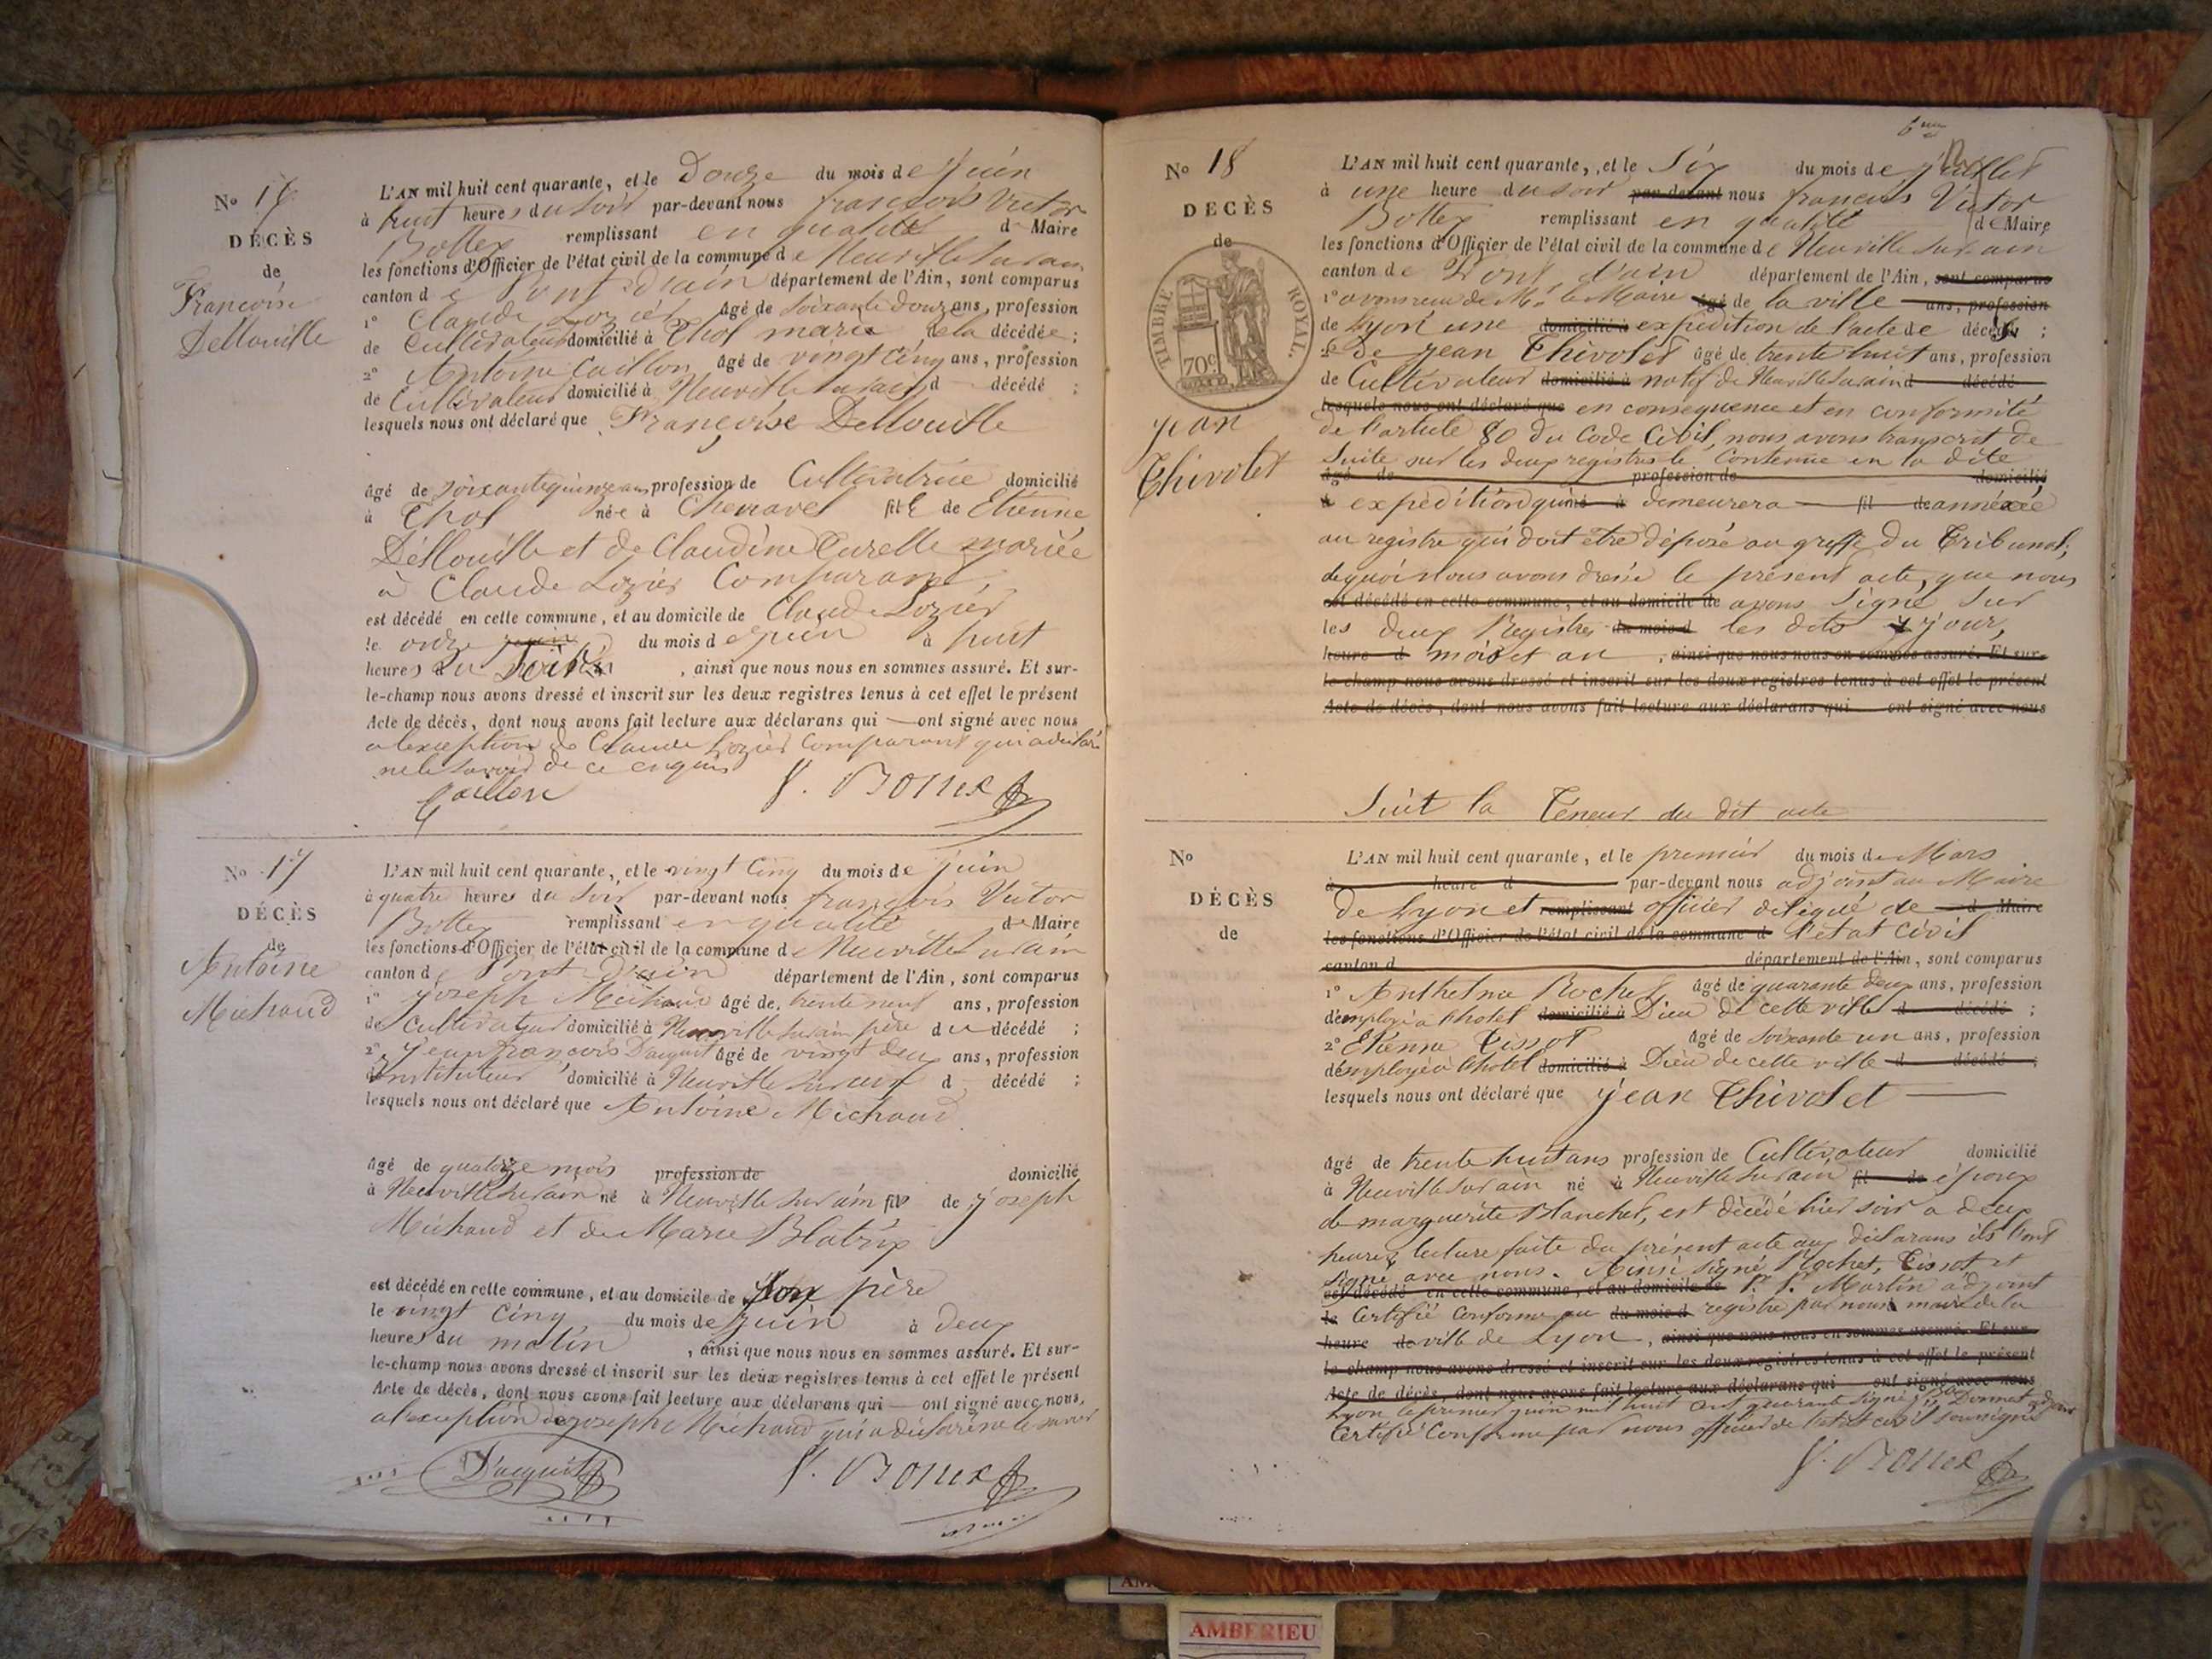 No 16
DÉCÈS
de
Françoise
Dellouille
L'AN mil huit cent quarante, et le Douze du mois de juin
à huit heures du soir par-devant nous françois Victor
Bottex remplissant en qualité de Maire
les fonctions d'Officier de l'état civil de la commune de Neuville sur ain
canton de Pont-d'ain département de l'Ain, sont comparus
1° Claude Lozier âgé de soixante douze ans, profession
de Cultivateur domicilié à Thol mari de la décédée ;
2° Antoine Caillon âgé de vingt cinq ans, profession
de Cultivateur domicilié à Neuville sur ain d décédé ;
lesquels nous ont déclaré que Françoise Dellouille
âgé de soixante quinze ans profession de Cultivatrice domicilié
à Thol née à Chenavel fille de Etienne
Dellouille et de Claudine Curelle mariée
à Claude Lozier Comparant,
est décédé en cette commune, et au domicile de Claude Lozier
le onze du mois de juin à huit
heures du soir , ainsi que nous nous en sommes assuré. Et sur-
le-champ nous avons dressé et inscrit sur les deux registres tenus à cet effet le présent
Acte de décès, dont nous avons fait lecture aux déclarans qui — ont signé avec nous
a lexception de Claude Lozier Comparant qui a déclaré
ne le savoir de ce enquis
Caillon V. Bottex
No 17
DÉCÈS
de
Antoine
Michaud
L'AN mil huit cent quarante, et le vingt cinq du mois de juin
à quatre heures du soir par-devant nous françois Victor
Bottex remplissant en qualité de Maire
les fonctions d'Officier de l'état civil de la commune de Neuville sur ain
canton de Pont-d'ain département de l'Ain, sont comparus
1° joseph Michaud âgé de trente neuf ans, profession
de Cultivateur domicilié à Neuville sur ain père du décédé ;
2° jean françois Dacquit âgé de vingt deux ans, profession
d'instituteur domicilié à Neuville sur ain d décédé ;
lesquels nous ont déclaré que Antoine Michaud
âgé de quatorze mois profession de domicilié
à Neuville sur ain né à Neuville sur ain fils de joseph
Michaud et de Marie Blatrix
est décédé en cette commune, et au domicile de son père
le vingt cinq du mois de juin à deux
heures du matin , ainsi que nous nous en sommes assuré. Et sur-
le-champ nous avons dressé et inscrit sur les deux registres tenus à cet effet le présent
Acte de décès, dont nous avons fait lecture aux déclarans qui — ont signé avec nous,
a lexception de joseph Michaud qui a déclaré ne le savoir
Dacquit V. Bottex
6me
No 18
DÉCÈS
de
TIMBRE ROYAL.
70c
jean
Thivolet
L'AN mil huit cent quarante, et le Six du mois de juillet
à une heure du soir par-devant nous françois Victor
Bottex remplissant en qualité de Maire
les fonctions d'Officier de l'état civil de la commune de Neuville sur ain
canton de Pont d'ain département de l'Ain, sont comparus
1° avons reçu de Mr le Maire âgé de la ville ans, profession
de Lyon une domicilié à expédition de l'acte de décès ;
2° De jean Thivolet âgé de trente huit ans, profession
de Cultivateur domicilié à natif de Neuville sur ain d décédé
lesquels nous ont déclaré que en consequence et en conformité
de l'article 80 du Code Civil, nous avons transcrit de
Suite sur les deux registres le Contenue en la dite
âgé de profession de domicilié
à expédition qui né à demeurera fil de annéxée
au registre qui doit etre déposé au greffe du Tribunal,
de quoi nous avons dressé le présent acte, que nous
est décédé en cette commune, et au domicile de avons signé sur
les deux Registres du mois d les dits jour,
heure d mois et an , ainsi que nous nous en sommes assuré. Et sur-
le-champ nous avons dressé et inscrit sur les deux registres tenus à cet effet le présent
Acte de décès, dont nous avons fait lecture aux déclarans qui ont signé avec nous
Suit la Téneur du dit acte
No
DÉCÈS
de
L'AN mil huit cent quarante, et le premier du mois de Mars
à heure d par-devant nous adjoint au Maire
De Lyon et remplissant officier délégué de d Maire
les fonctions d'Officier de l'état civil de la commune d l'etat Civil
canton d département de l'Ain, sont comparus
1° Anthelme Rochet âgé de quarante deux ans, profession
demployé a lhotel domicilié à Dieu de cette ville d décédé ;
2° Etienne Tissot âgé de soixante un ans, profession
demployé a lhotel domicilié à Dieu de cette ville d décédé ;
lesquels nous ont déclaré que jean Thivolet
âgé de trente huit ans profession de Cultivateur domicilié
à Neuville sur ain né à Neuville sur ain fil de époux
de marguerite Blanchet, est décédé hier soir a deux
heures, lecture faite du présent acte aux déclarans ils l'ont
signé avec nous. Ainsi signé Rochet, Tissot et
est décédé en cette commune, et au domicile de Martin adjoint
le Certifié Conforme au du mois d registre par nous maire de la
heure de ville de Lyon, ainsi que nous nous en sommes assuré. Et sur-
le-champ nous avons dressé et inscrit sur les deux registres tenus à cet effet le présent
Acte de décès, dont nous avons fait lecture aux déclarans qui ont signé avec nous
Lyon le premier juin mil huit cent quarante signé Donnet adjoint
Certifié Conforme par nous officier de l'etat civil soussigné
V. Bottex
AMBERIEU